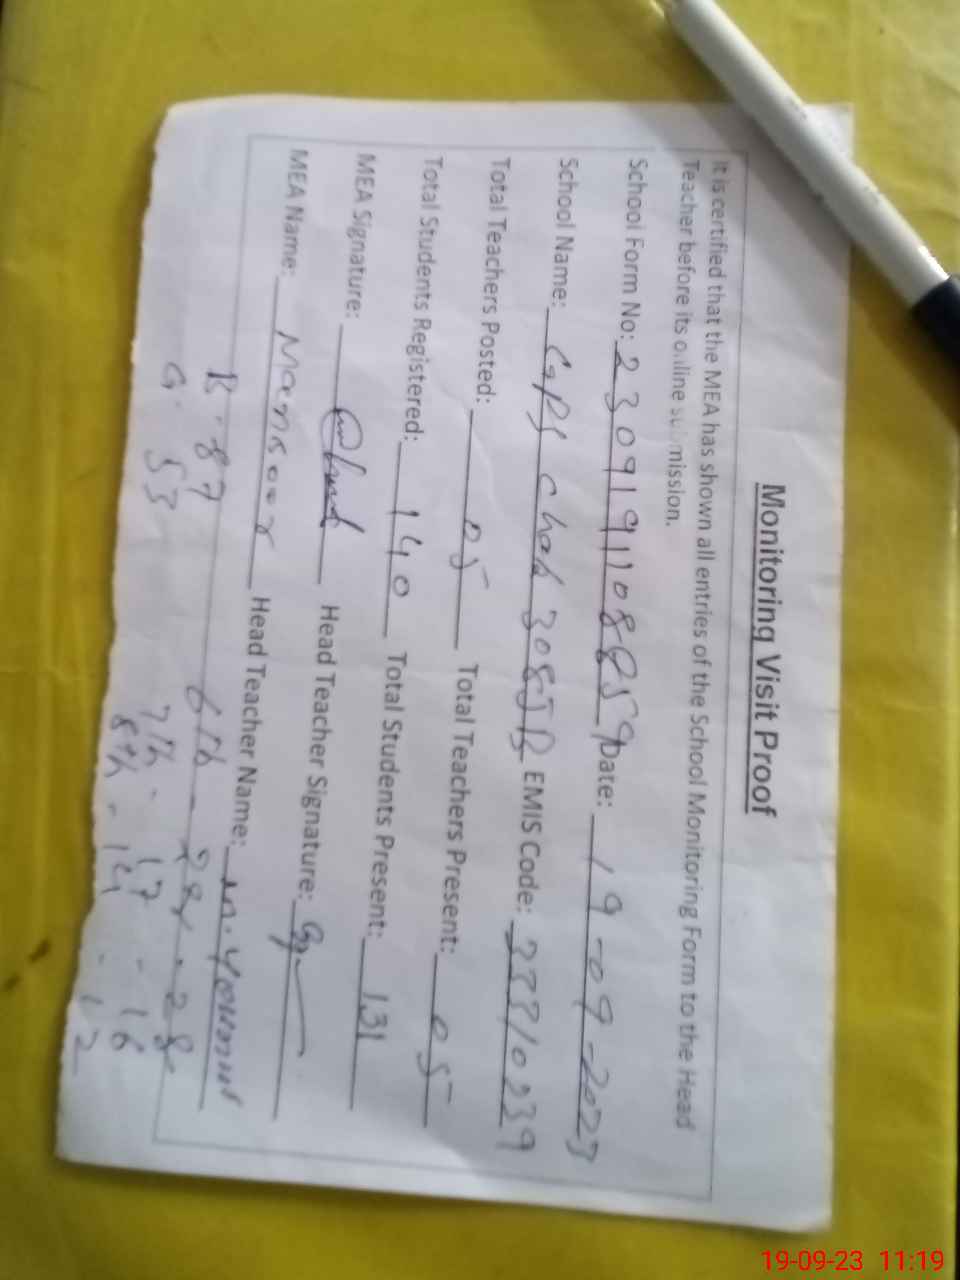 Monitoring Visit Proof
It is certified that the MEA has shown all entries of the School Monitoring Form to the Head
Teacher before its online submission.
School Form No: 2309191108859 Date: 19-09-2023
School Name: GPS chak 308JB EMIS Code:
Total Teachers Posted: 05 Total Teachers Present: 05
Total Students Registered: 140 Total Students Present: 131
MEA Signature: Head Teacher Signature:
MEA Name: Mansoor Head Teacher Name:
B. 87 6th - 28
G. 53 7th - 17 - 16
8th - 14 - 12
19-09-23 11:19